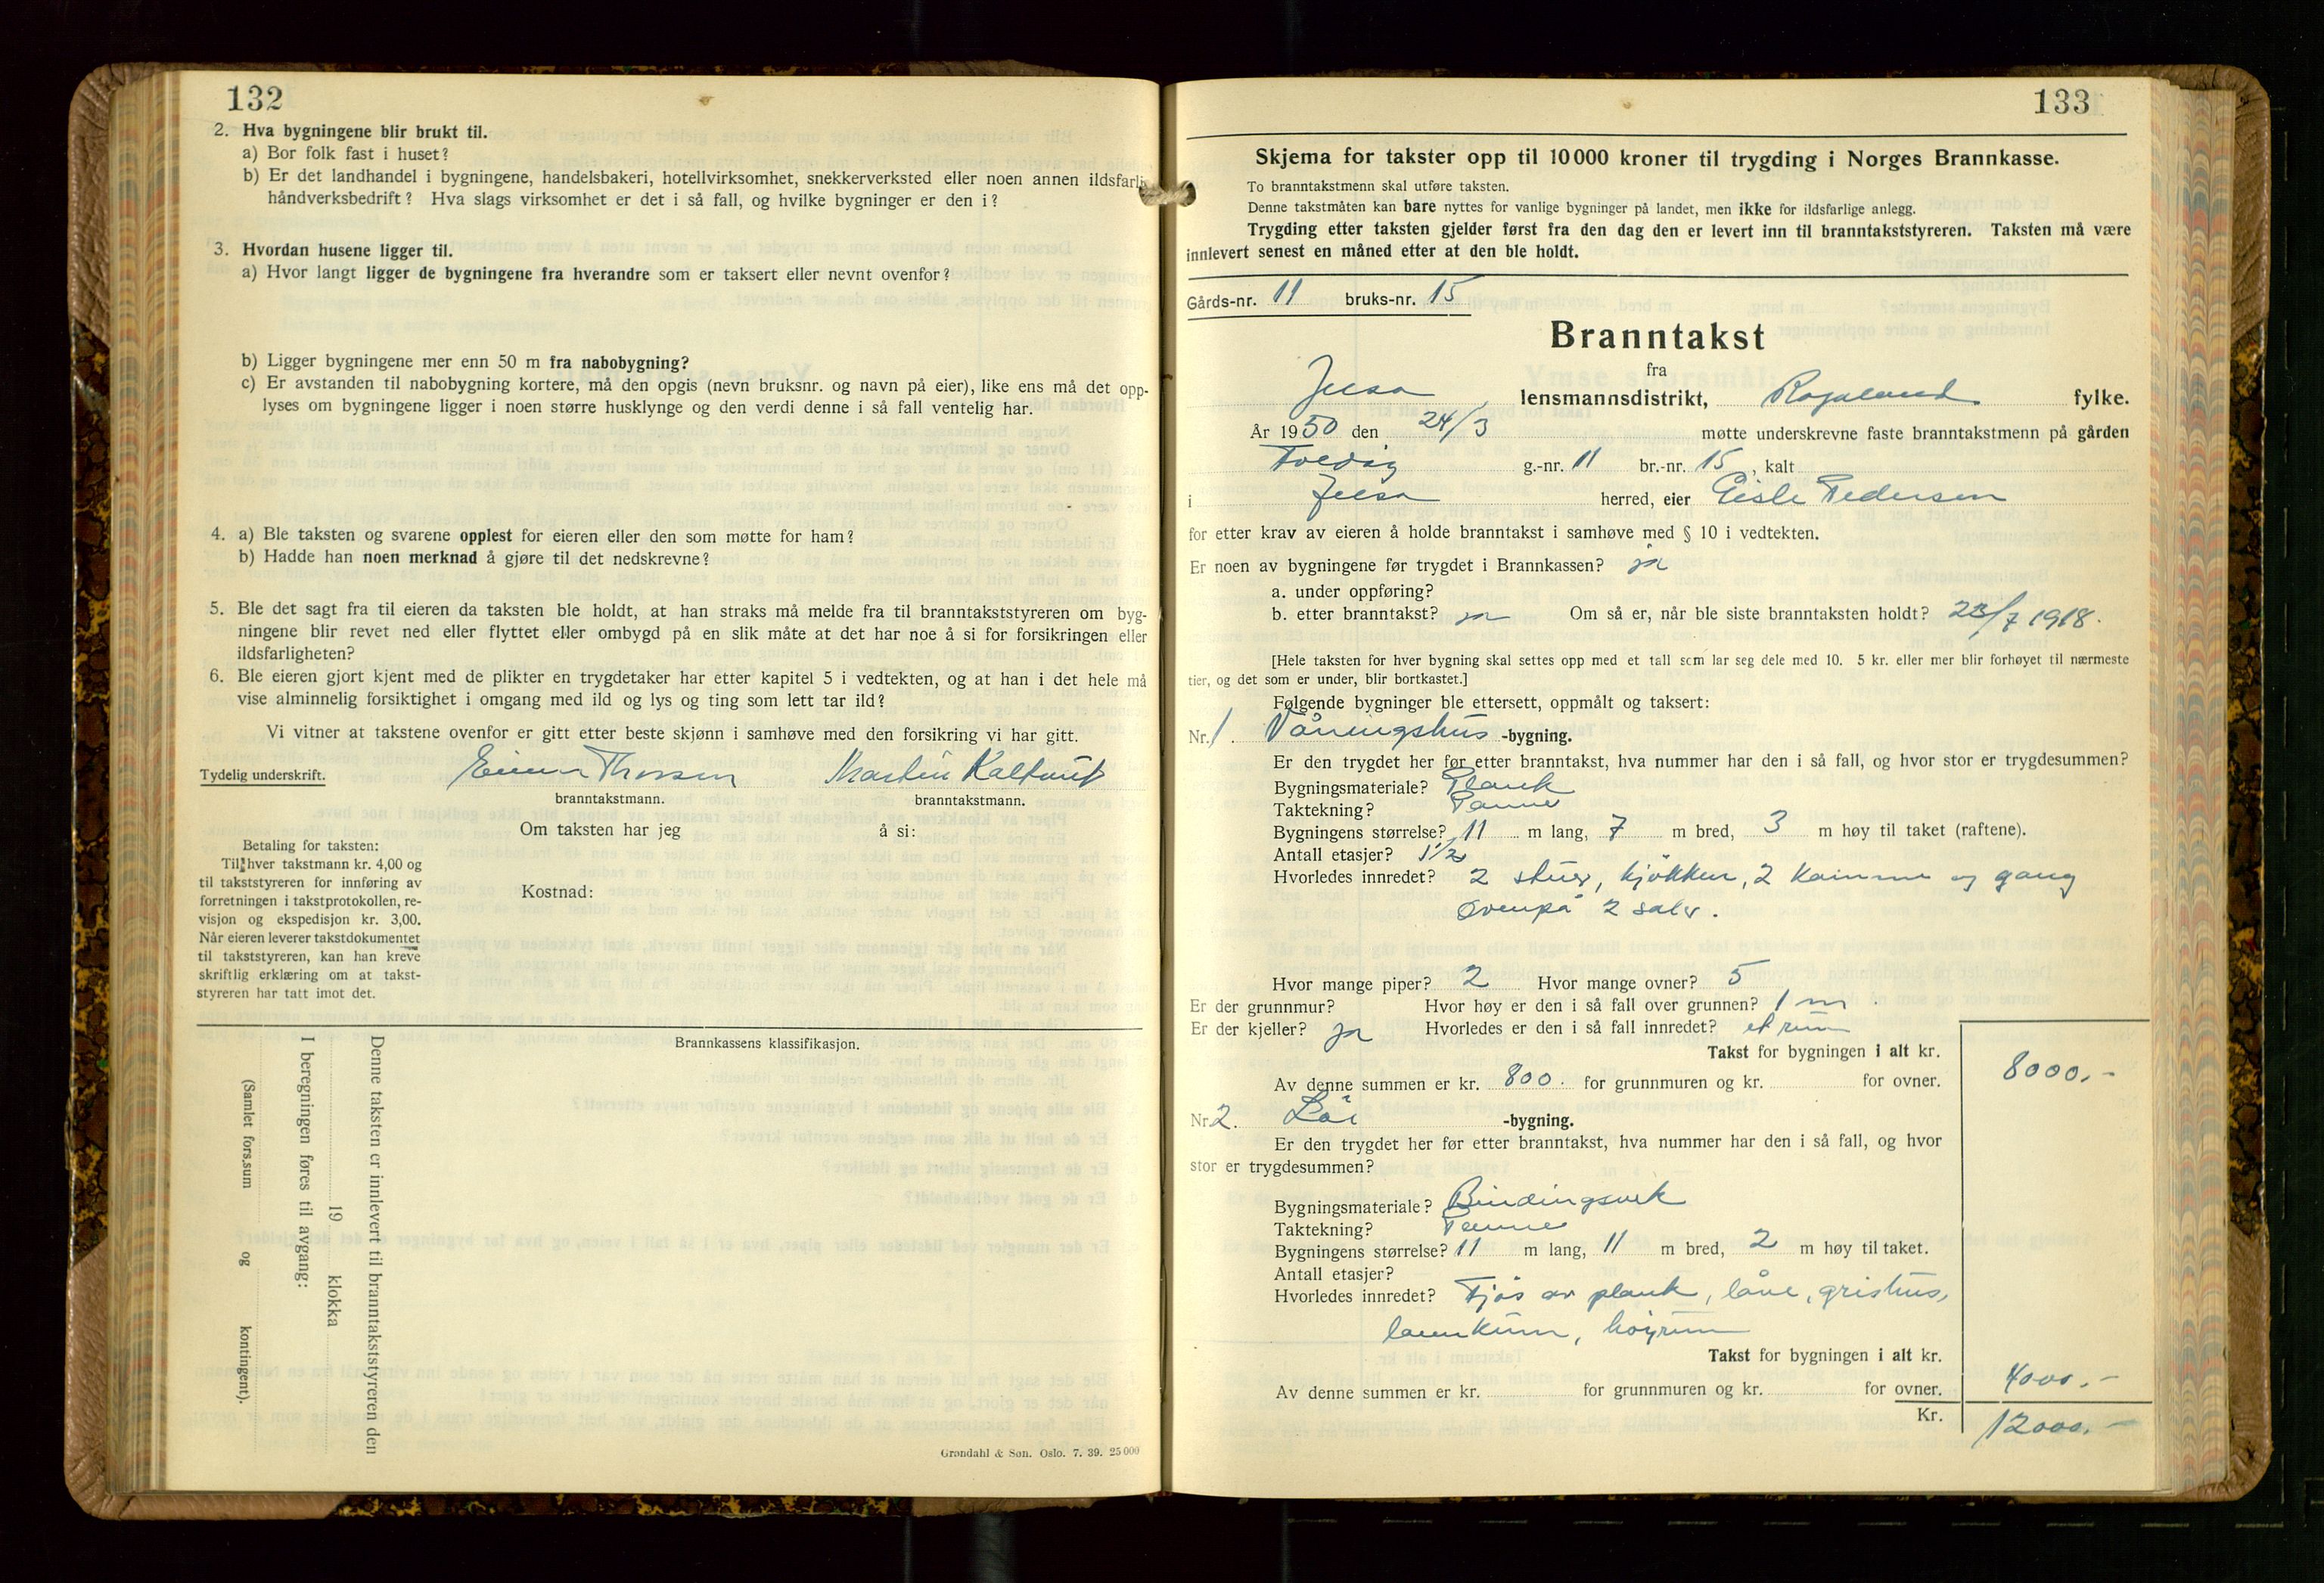 132
2. Hva bygningene blir brukt til.
a) Bor folk fast i huset?
b) Er det landhandel i bygningene, handelsbakeri, hotellvirksomhet, snekkerverksted eller noen annen ildsfarlig
håndverksbedrift? Hva slags virksomhet er det i så fall, og hvilke bygninger er den i?
3. Hvordan husene ligger til.
a) Hvor langt ligger de bygningene fra hverandre som er taksert eller nevnt ovenfor?
b) Ligger bygningene mer enn 50 m fra nabobygning?
c) Er avstanden til nabobygning kortere, må den opgis (nevn bruksnr. og navn på eier), like ens må det opp-
lyses om bygningene ligger i noen større husklynge og den verdi denne i så fall ventelig har.
4. a) Ble taksten og svarene opplest for eieren eller den som møtte for ham?
b) Hadde han noen merknad å gjøre til det nedskrevne?
5. Ble det sagt fra til eieren da taksten ble holdt, at han straks må melde fra til branntakststyreren om byg-
ningene blir revet ned eller flyttet eller ombygd på en slik måte at det har noe å si for forsikringen eller
ildsfarligheten?
6. Ble eieren gjort kjent med de plikter en trygdetaker har etter kapitel 5 i vedtekten, og at han i det hele må
vise alminnelig forsiktighet i omgang med ild og lys og ting som lett tar ild?
Vi vitner at takstene ovenfor er gitt etter beste skjønn i samhøve med den forsikring vi har gitt.
Tydelig underskrift. Einar Thorsen Martin Kaltveit
branntakstmann. branntakstmann.
Om taksten har jeg å si:
Betaling for taksten:
Til hver takstmann kr. 4,00 og
til takststyreren for innføring av
forretningen i takstprotokollen, re-
visjon og ekspedisjon kr. 3,00.
Når eieren leverer takstdokumentet
til takststyreren, kan han kreve
skriftlig erklæring om at takst-
styreren har tatt imot det.
Kostnad:
Brannkassens klassifikasjon.
Denne taksten er innlevert til branntakststyreren den
19 klokka
I beregningen føres til avgang:
(Samlet fors.sum og kontingent).
Grøndahl & Søn. Oslo. 7. 39. 25 000
133
Skjema for takster opp til 10 000 kroner til trygding i Norges Brannkasse.
To branntakstmenn skal utføre taksten.
Denne takstmåten kan bare nyttes for vanlige bygninger på landet, men ikke for ildsfarlige anlegg.
Trygding etter taksten gjelder først fra den dag den er levert inn til branntakststyreren. Taksten må være
innlevert senest en måned etter at den ble holdt.
Gårds-nr. 11 bruks-nr. 15
Branntakst
fra
Jelsa lensmannsdistrikt, Rogaland fylke.
År 1950 den 24/3 møtte underskrevne faste branntakstmenn på gården
g.-nr. 11 br.-nr. 15, kalt
i Jelsa herred, eier Gisle Pedersen
for etter krav av eieren å holde branntakst i samhøve med § 10 i vedtekten.
Er noen av bygningene før trygdet i Brannkassen? ja
a. under oppføring?
b. etter branntakst? ja Om så er, når ble siste branntaksten holdt? 23/7 1918.
[Hele taksten for hver bygning skal settes opp med et tall som lar seg dele med 10. 5 kr. eller mer blir forhøyet til nærmeste
tier, og det som er under, blir bortkastet.]
Følgende bygninger ble ettersett, oppmålt og taksert:
Nr. 1. Våningshus -bygning.
Er den trygdet her før etter branntakst, hva nummer har den i så fall, og hvor stor er trygdesummen?
Bygningsmateriale? Plank
Taktekning? Panne
Bygningens størrelse? 11 m lang, 7 m bred, 3 m høy til taket (raftene).
Antall etasjer? 1 1/2
Hvorledes innredet? 2 stuer, kjøkken, 2 kammer og gang
ovenpå 2 saler.
Hvor mange piper? 2 Hvor mange ovner? 5
Er der grunnmur? Hvor høy er den i så fall over grunnen? 1 m.
Er der kjeller? ja Hvorledes er den i så fall innredet? et rum
Takst for bygningen i alt kr. 8000.-
Av denne summen er kr. 800. for grunnmuren og kr. for ovner.
Nr. 2. -bygning.
Er den trygdet her før etter branntakst, hva nummer har den i så fall, og hvor
stor er trygdesummen?
Bygningsmateriale? Bindingsverk
Taktekning? Panne
Bygningens størrelse? 11 m lang, 11 m bred, 2 m høy til taket.
Antall etasjer?
Hvorledes innredet? Fjøs av plank, låve, grishus,
høyrum
Takst for bygningen i alt kr. 4000.-
Av denne summen er kr. for grunnmuren og kr. for ovner.
Kr. 12000.-